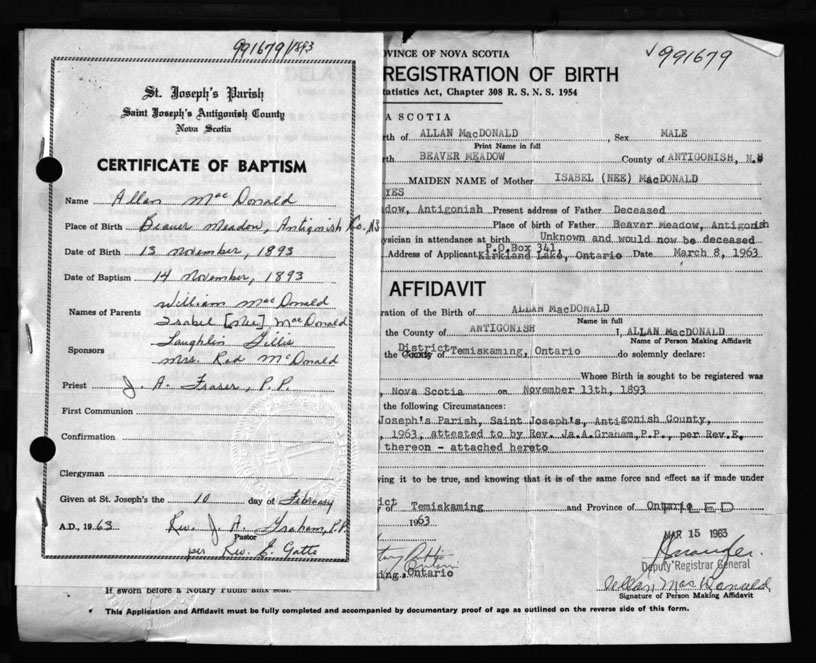 991679/1893
St. Joseph's Parish
Saint Joseph's Antigonish County
Nova Scotia
CERTIFICATE OF BAPTISM
Name Allan MacDonald
Place of Birth Beaver Meadow, Antigonish Co. NS
Date of Birth 13 November, 1893
Date of Baptism 14 November, 1893
Names of Parents William MacDonald
Isabel [Nee] MacDonald
Sponsors Laughlin Gillis
Mrs. Rod McDonald
Priest J. A. Fraser, P.P.
First Communion
Confirmation
Clergyman
Given at St. Joseph's the 10 day of February
A.D., 1963. Rev. J. A. Graham, P.P.
Pastor
per Rev. E. Gatto
✓991679
OVINCE OF NOVA SCOTIA
REGISTRATION OF BIRTH
tatistics Act, Chapter 308 R. S. N. S. 1954
A SCOTIA
rth of ALLAN MacDONALD Sex MALE
Print Name in full
rth BEAVER MEADOW County of ANTIGONISH, N.S
MAIDEN NAME of Mother ISABEL (NEE) MacDONALD
YES
dow, Antigonish Present address of Father Deceased
Place of birth of Father Beaver Meadow, Antigonish
ysician in attendance at birth Unknown and would now be deceased
P.O.Box 341
Address of Applicant Kirkland Lake, Ontario Date March 8, 1963
AFFIDAVIT
ration of the Birth of ALLAN MacDONALD
Name in full
the County of ANTIGONISH I, ALLAN MacDONALD
Name of Person Making Affidavit
the County District Temiskaming, Ontario do solemnly declare:
Whose Birth is sought to be registered was
, Nova Scotia on November 13th, 1893
the following Circumstances:
Joseph's Parish, Saint Joseph's, Antigonish County,
, 1963, attested to by Rev. Ja.A.Graham,P.P., per Rev.E,
thereon - attached hereto
ving it to be true, and knowing that it is of the same force and effect as if made under
ict of Temiskaming and Province of Ontario
ED
1963
MAR 15 1963
Deputy Registrar General
ing, Ontario
Allan MacDonald
Signature of Person Making Affidavit
If sworn before a Notary Public affix seal.
This Application and Affidavit must be fully completed and accompanied by documentary proof of age as outlined on the reverse side of this form.